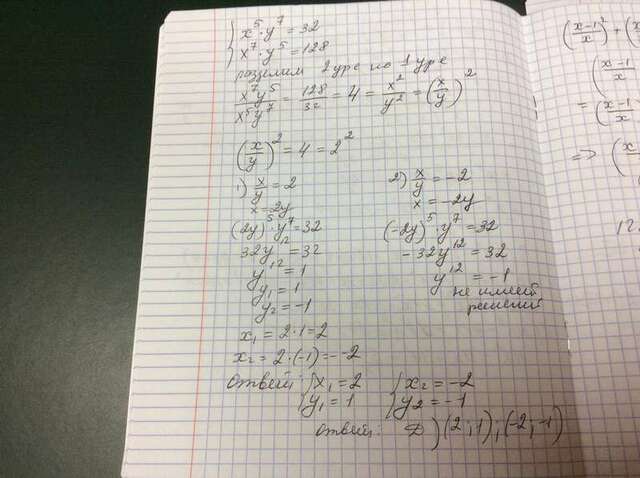 x⁵·y⁷=32
x⁷·y⁵=128
разделим 2 уре на 1 уре
x⁷y⁵/x⁵y⁷ = 128/32 = 4 = x²/y² = (x/y)²
(x/y)² = 4 = 2²
1) x/y = 2
x=2y
(2y)⁵·y⁷=32
32y¹²=32
y¹²=1
y₁=1
y₂=-1
x₁=2·1=2
x₂=2·(-1)=-2
2) x/y = -2
x=-2y
(-2y)⁵·y⁷=32
-32y¹²=32
y¹²=-1
не имеет
решений
Ответ: { x₁=2 { x₂=-2
y₁=1 y₂=-1
ответ: Д) (2;1);(-2;-1)
(x-1/x)² + (
(x-1/x
= (x-1/x
=> (x
12.